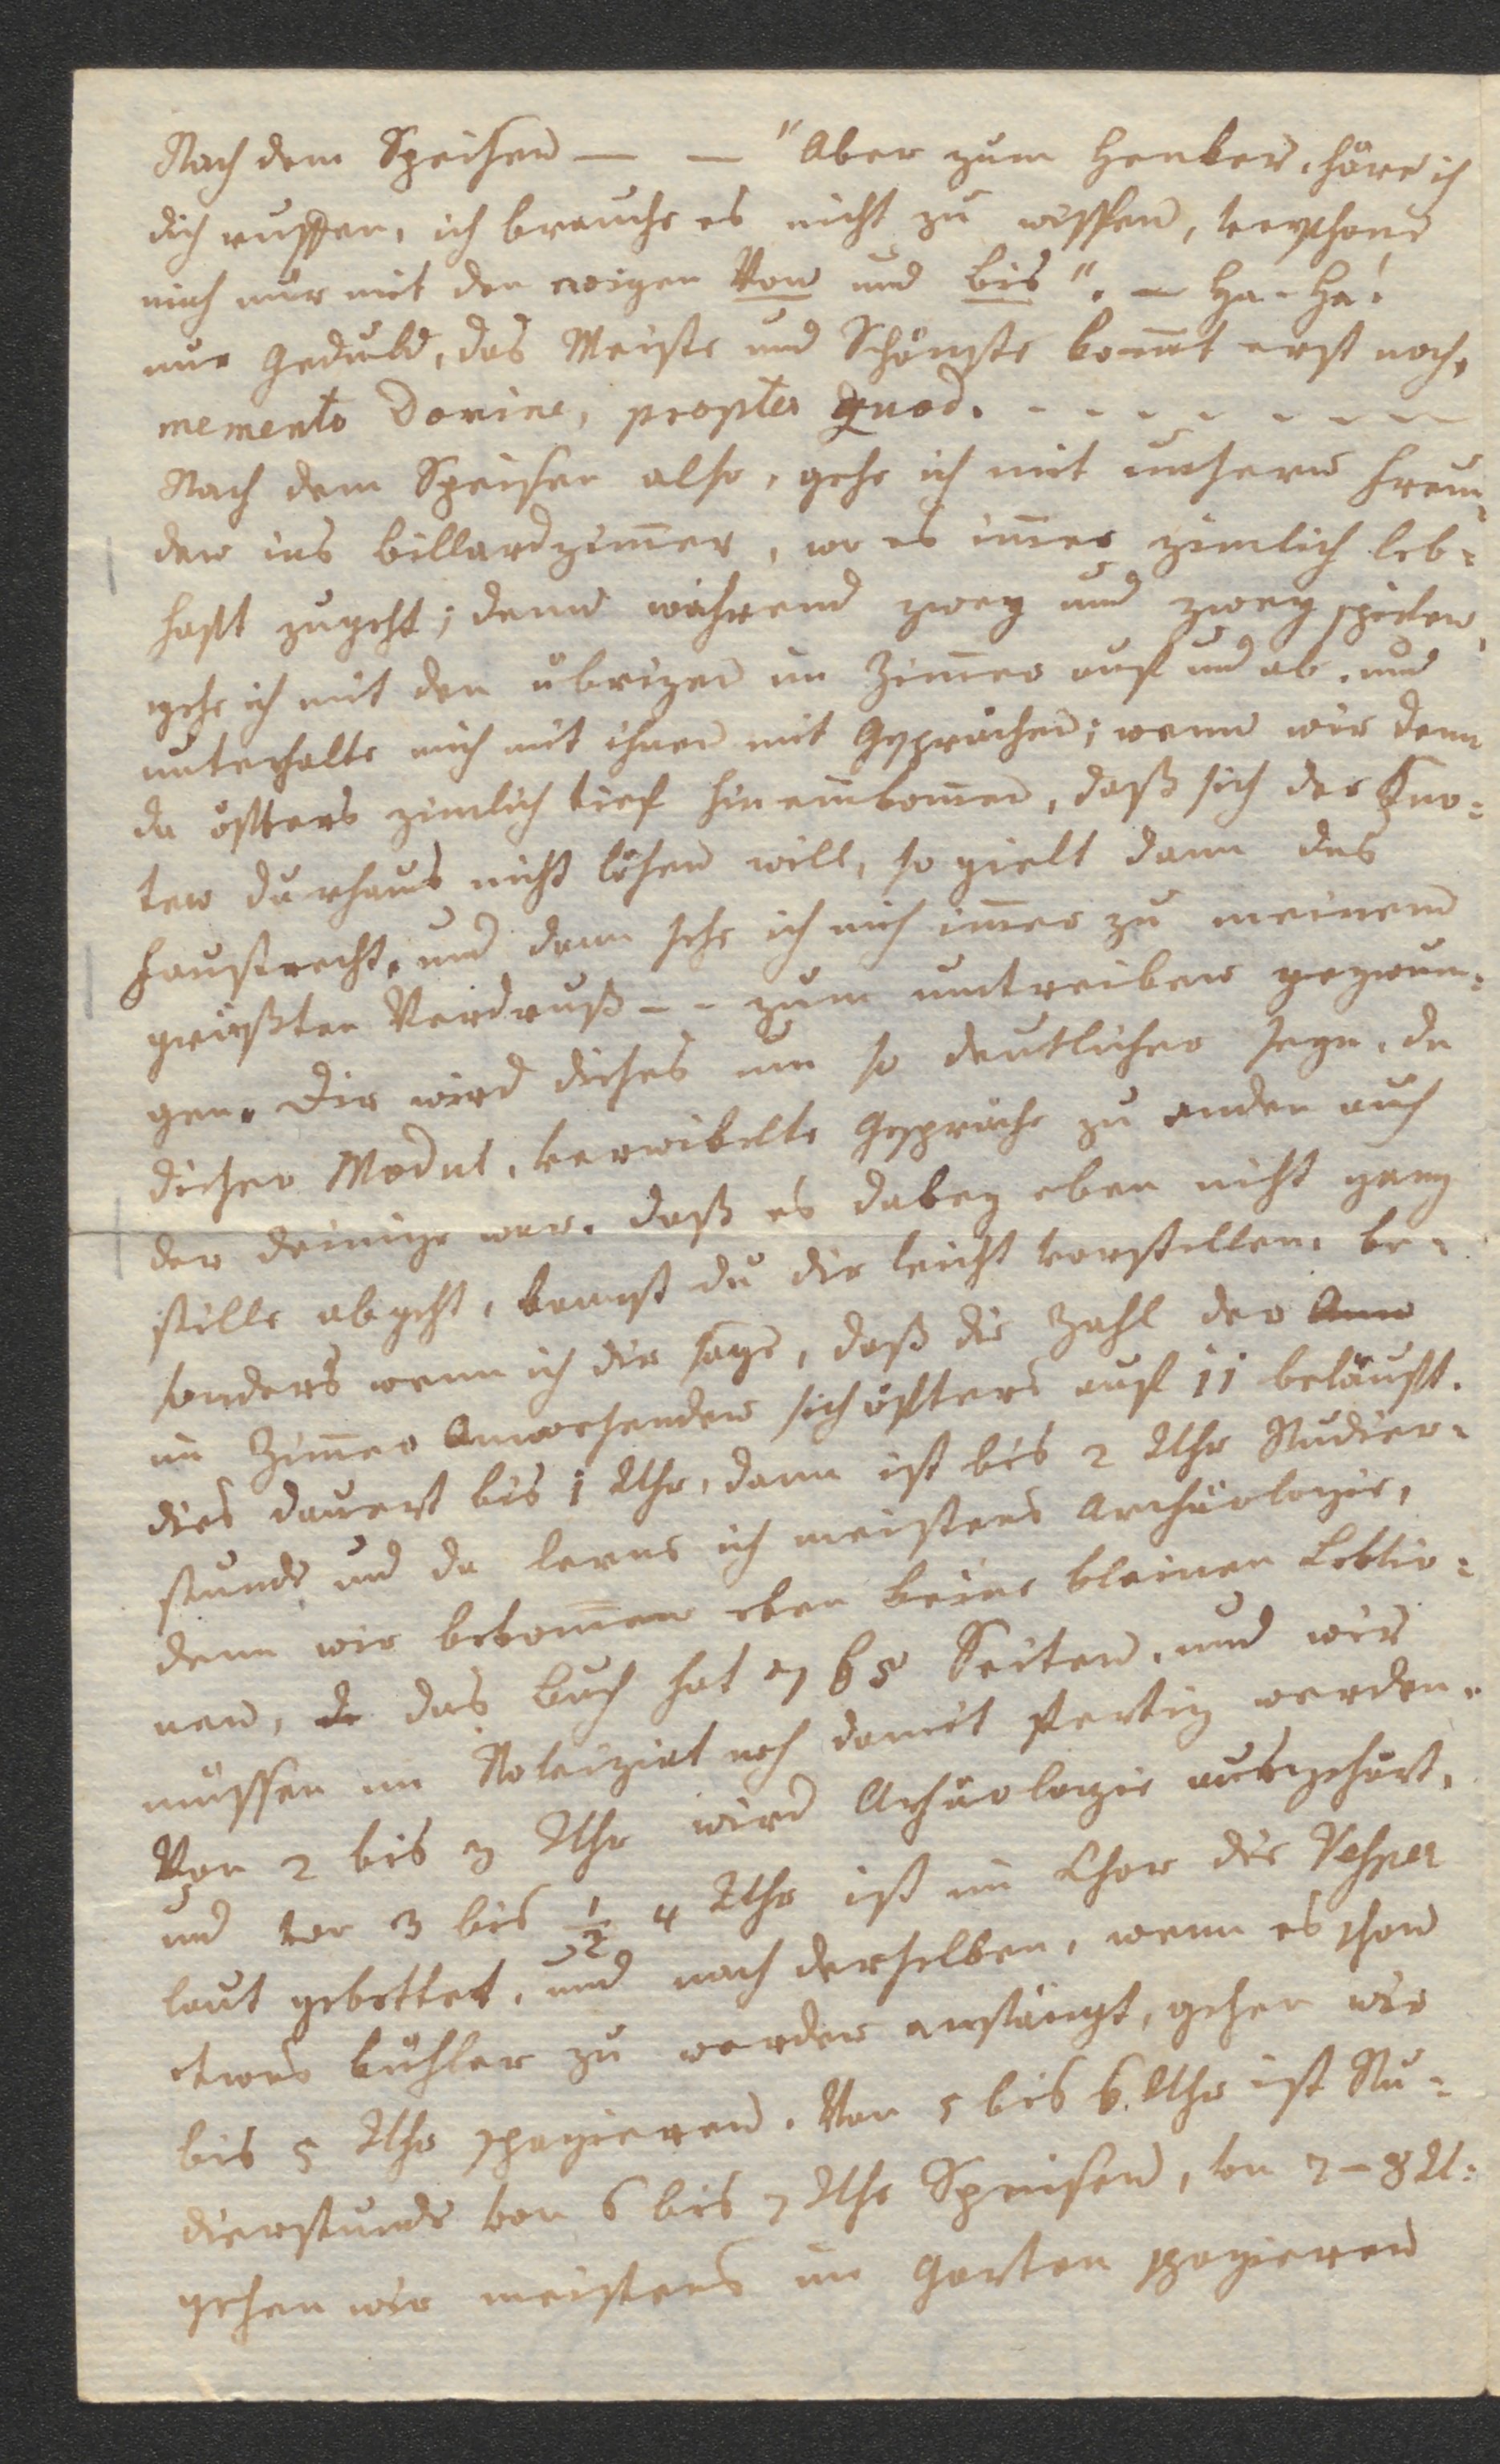 Nach dem Speisen — — "Aber zum Henker, höre ich
dich ruffen, ich brauche es nicht zu wissen, verschone
mich nur mit den ewigen Von und bis". — Ha-Ha!
nur Geduld, das Meiste und Schönste kom̄t erst noch,
memento Dorine, propter quod. - - - - - - - -
Nach dem Speisen also, gehe ich mit unsern Freun¬
den ins billardzim̄er, wo es im̄er zimlich leb¬
haft zugeht; denn während zwey und zwey spielen,
gehe ich mit den übrigen im Zim̄er auf und ab, und
unterhalte mich mit ihnen mit Gesprächen; wenn wir denn
da öfters zimlich tief hineinkom̄en, daß sich der Kno¬
ten durchaus nicht lösen will, so gielt dann das
Faustrecht, und dann sehe ich mich im̄er zu meinem
größten Verdruß - - zum umtreiben gezwun¬
gen. Dir wird dieses um so deutlicher seyn, da
dieser Modus, verwikelte Gespräche zu enden auch
der deinige war. Daß es dabey eben nicht ganz
stille abgeht, kannst du dir leicht vorstellen, be¬
sonders wenn ich dir sage, daß die Zahl der Anw
im Zim̄er Anwesenden sich öfters auf 11 beläuft.
dies dauert bis 1 Uhr, dann ist bis 2 Uhr Studier¬
stunde, und da lerne ich meistens Archäologie,
denn wir bekom̄en eben keine kleinen Lektio¬
nen, da das Buch hat 765 Seiten, und wir
müssen im Noviziat noch damit fertig werden.
Von 2 bis 3 Uhr wird Archäologie ausgehört,
und von 3 bis ½ 4 Uhr ist im Chor die Vesper
laut gebettet, und nach derselben, wenn es schon
etwas kühler zu werden anfängt, gehen wir
bis 5 Uhr spazieren. Von 5 bis 6 Uhr ist Stu¬
dierstunde von 6 bis 7 Uhr Speisen, von 7-8 U:
gehen wir meistens im Garten spazieren